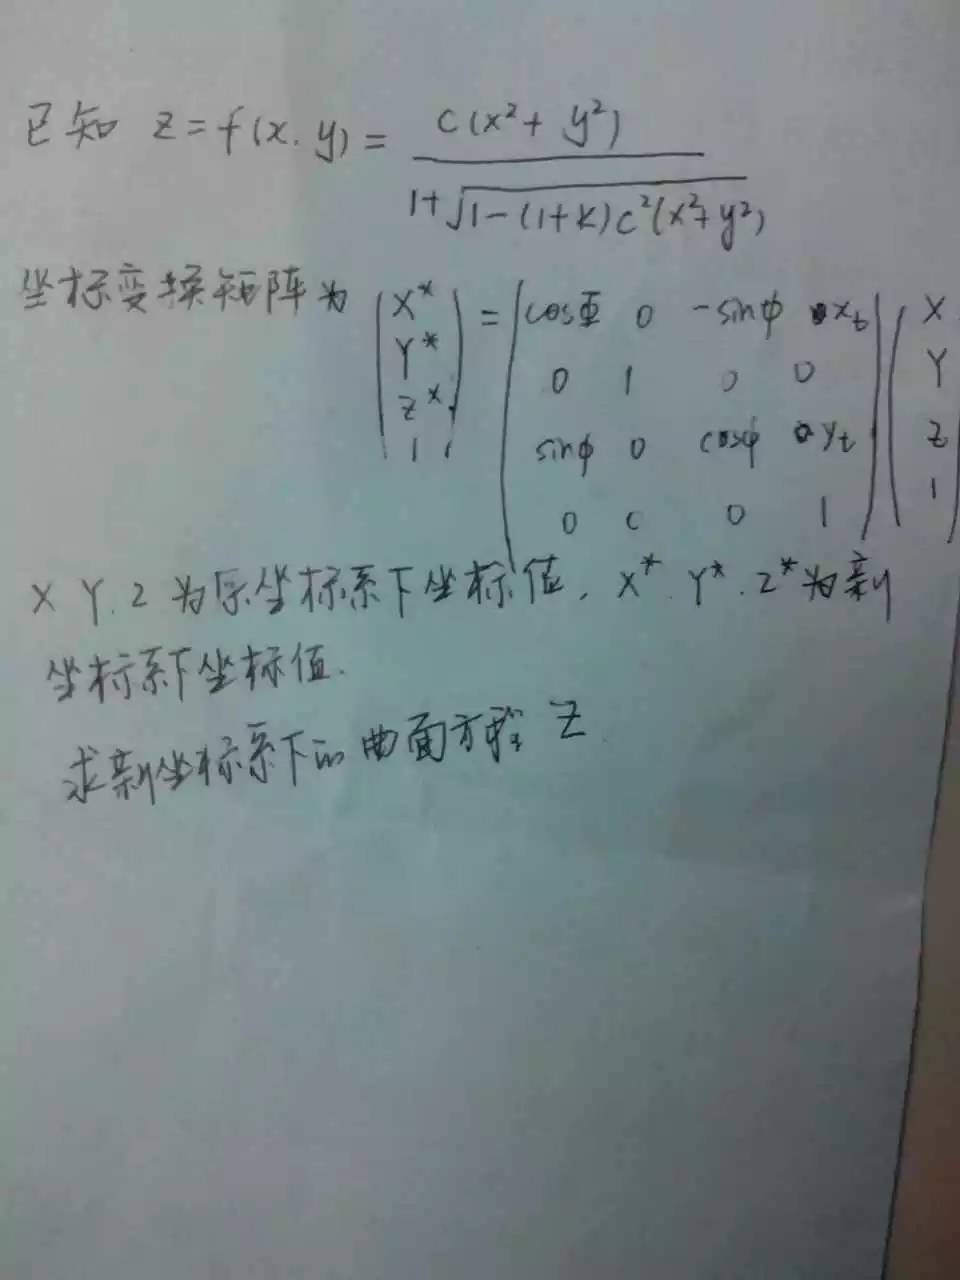 已知 z=f(x.y)= c(x²+y²) / 1+√1-(1+k)c²(x²+y²)
坐标变换矩阵为 (X* Y* Z* 1) = |cosΦ 0 -sinφ x_t| (X
0 1 0 0 Y
sinφ 0 cosφ y_t Z
0 0 0 1 1)
X Y.Z 为原坐标系下坐标值, X*.Y*.Z*为新
坐标系下坐标值.
求新坐标系下的曲面方程 Z